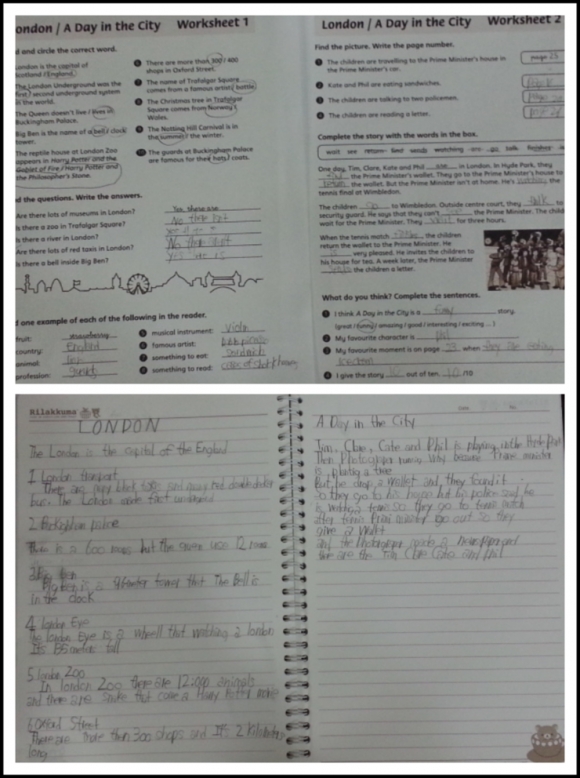 London / A Day in the City Worksheet 1
d and circle the correct word.
London is the capital of
Scotland / England.
The London Underground was the
first / second underground system
in the world.
The Queen doesn't live / lives in
Buckingham Palace.
Big Ben is the name of a bell / clock
tower.
The reptile house at London Zoo
appears in Harry Potter and the
Goblet of Fire / Harry Potter and
the Philosopher's Stone.
There are more than 300 / 600
shops in Oxford Street.
The name of Trafalgar Square
comes from a famous artist / battle.
The Christmas tree in Trafalgar
Square comes from Norway /
Wales.
The Notting Hill Carnival is in
the summer / the winter.
11 The guards at Buckingham Palace
are famous for their hats / coats.
d the questions. Write the answers.
Are there lots of museums in London?
Yes, there are
Is there a zoo in Trafalgar Square?
Is there a river in London?
Are there lots of red taxis in London?
Is there a bell inside Big Ben?
d one example of each of the following in the reader.
fruit: strawberry
country: England
animal: lion
profession:
5 musical instrument: Violin
6 famous artist:
7 something to eat: sandwich
8 something to read:
London / A Day in the City Worksheet 2
Find the picture. Write the page number.
1 The children are travelling to the Prime Minister's house in
the Prime Minister's car.
page 23
2 Kate and Phil are eating sandwiches.
3 The children are talking to two policemen.
4 The children are reading a letter.
Complete the story with the words in the box.
wait see return find sends watching are go talk finishes is
One day, Tim, Clare, Kate and Phil are in London. In Hyde Park, they
find the Prime Minister's wallet. They go to the Prime Minister's house to
return the wallet. But the Prime Minister isn't at home. He's watching the
tennis final at Wimbledon.
The children go to Wimbledon. Outside centre court, they talk to
security guard. He says that they can't see the Prime Minister. The child
wait for the Prime Minister. They wait for three hours.
When the tennis match the children
return the wallet to the Prime Minister. He
is very pleased. He invites the children to
his house for tea. A week later, the Prime Minister
sends the children a letter.
What do you think? Complete the sentences.
1 I think A Day in the City is a funny story.
(great / funny / amazing / good / interesting / exciting ... )
2 My favourite character is Phil
3 My favourite moment is on page when they are eating
icecream
4 I give the story 10 out of ten. 10 /10
Rilakkuma
LONDON
The London is the capital of the England
1 London transport
There are many black taxis and many red double decker
bus. The London made first underground
2
There is a 600 rooms but the queen use 12 rooms
Big Ben is a tower that The Bell is
in the clock
4 London Eye
The London Eye is a wheell that watching a london
It's 135 meters tall
5 London Zoo
In london Zoo there are 12,000 animals
and there are snake that came a Harry Potter movie
6 Oxford Street
There are more than 300 shops and It's 2 Kilometers
long
Date No
A Day in the City
Tim, Clare, Cate and Phil is playing in the Hyde Park
Then Photographer running Why because Prime minister
is planting a tree
But he drop a wallet and they found it
So they go to his house but his police said he
is watching a tennis so they go to tennis match
after tennis Prime minister go out so they
give a wallet
and the Photographer a newspaper and